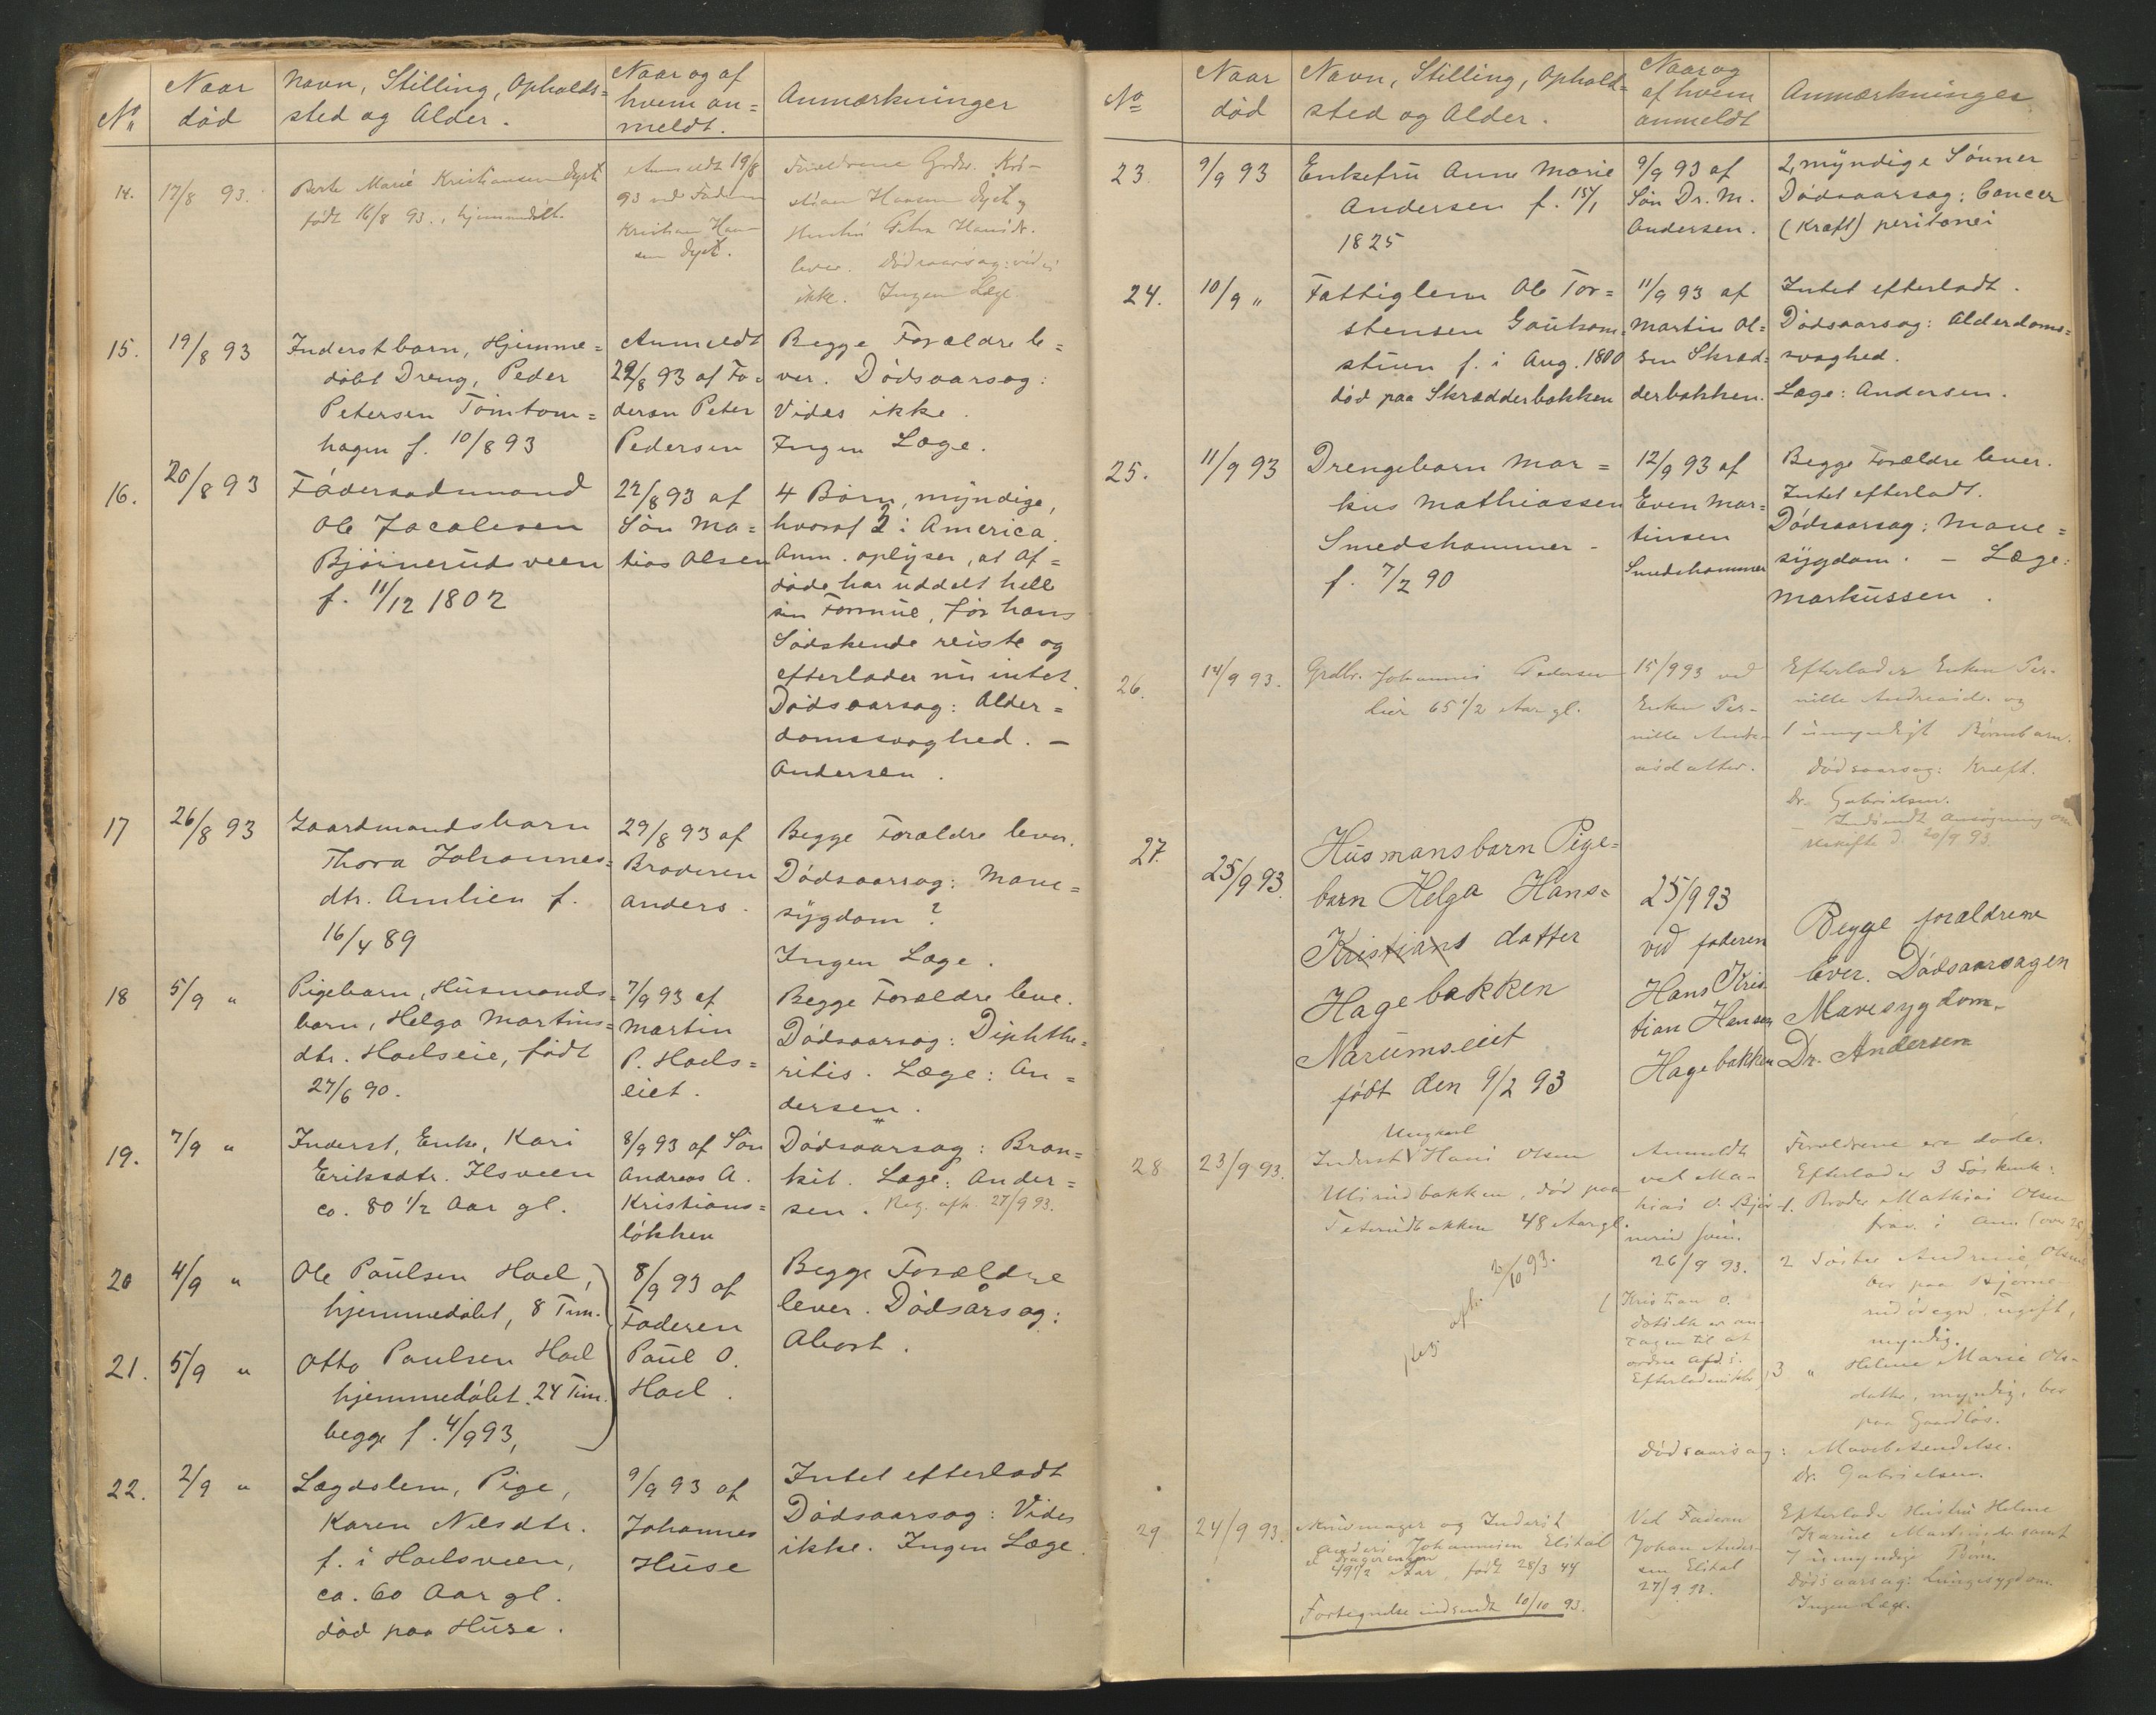 No
Naar
død
Navn, Stilling, Opholds=
sted og Alder.
Naar og af
hvem an=
meldt.
Anmærkninger
14.
17/8 93.
Berte Marie Kristiansen Dyst
født 16/8 93., hjemmedøbt.
Anmeldt 19/8
93 ved Faderen
Kristian Han-
sen Dyst.
Forældrene Grdbr. Kri-
stian Hansen Dyst og
Hustru Petra Hansdr.
lever. Dødsaarsag: vides
ikke. Ingen Læge.
15.
19/8 93
Inderstbarn, Hjemme=
døbt Dreng, Peder
Petersen Tømtom=
hagen f. 10/8 93
Anmeldt
22/8 93 af Fa=
deren Peter
Pedersen
Begge Forældre le=
ver. Dødsaarsag:
Vides ikke.
Ingen Læge.
16.
20/8 93
Føderaadsmand
Ole Jacobsen
Bjørnerudsveen
f. 11/12 1802
22/8 93 af
Søn Ma=
tias Olsen
4 Børn, myndige,
hvoraf 2 i America.
Anm. oplyser, at Af=
døde har uddelt hele
sin Formue, før hans
Sødskende reiste og
efterlader nu intet.
Dødsaarsag: Alder=
domssvaghed. —
Andersen.
17
26/8 93
Gaardmandsbarn
Thora Johannes=
dtr. Amlien f.
16/4 89
29/8 93 af
Broderen
Anders.
Begge Forældre lever.
Dødsaarsag: Mave=
sygdom?
Ingen Læge.
18
5/9 "
Pigebarn, Husmands=
barn, Helga Martins=
dtr. Hoelseie, født
27/6 90.
7/9 93 af
Martin
P. Hoels=
eiet.
Begge Forældre leve.
Dødsaarsag: Diphthe=
ritis. Læge: An=
dersen.
19.
7/9 "
Inderst, Enke, Kari
Eriksdtr. Ilsveen
ca. 80 1/2 Aar gl.
8/9 93 af Søn
Andreas A.
Kristians=
løkken
Dødsaarsag: Bron=
kit. Læge: Ander=
sen. Reg. oph. 27/9 93.
20
4/9 "
Ole Paulsen Hoel,
hjemmedøbt, 8 Tim.
8/9 93 af
Faderen
Paul O.
Hoel.
Begge Forældre
lever. Dødsårsag:
Abort.
21.
5/9 "
Otto Paulsen Hoel
hjemmedøbt. 24 Tim.
begge f. 4/9 93,
22.
2/9 "
Lægdslem, Pige,
Karen Nilsdtr.
f. i Hoelsveen,
ca. 60 Aar gl.
død paa Huse.
9/9 93 af
Johannes
Huse
Intet efterladt
Dødsaarsag: Vides
ikke. Ingen Læge.
No
Naar
død
Navn, Stilling, Ophold=
sted og Alder.
Naar og
af hvem
anmeldt
Anmærkninger
23.
9/9 93
Enkefru Anne Marie
Andersen f. 15/1
1825
9/9 93 af
Søn Dr. M.
Andersen.
2, myndige Sønner
Dødsaarsag: Cancer
(Kræft) peritonei
24.
10/9 "
Fattiglem Ole Tor=
stensen Gaukom=
stuen f. i Aug. 1800
død paa Skrædderbakken
11/9 93 af
Martin Ol=
sen Skræd=
derbakken.
Intet efterladt.
Dødsaarsag: Alderdoms=
svaghed.
Læge: Andersen.
25.
11/9 93
Drengebarn Mar=
kus Mathiassen
Smedshammer -
f. 7/2 90
12/9 93 af
Even Mar=
tinsen
Smedshammer
Begge Forældre lever.
Intet efterladt.
Dødsaarsag: Mave=
sygdom. — Læge:
Markussen.
26.
14/9 93.
Grdbr. Johannes Pedersen
Lier 65 1/2 Aar gl.
15/9 93 ved
Enken Per-
nille Andre-
asdatter.
Efterlader Enken Per-
nille Andreasdr. og
1 umyndigt Børnebarn.
Dødsaarsag: Kræft.
Dr. Gabrielsen.
Indsendt Ansøgning om
skifte d. 20/9 93.
27.
25/9 93.
Husmansbarn Pige=
barn Helga Hans=
Kristians datter
Hagebakken
Narumseiet
født den 9/2 93
25/9 93
ved faderen
Hans Kris
tian Hansen
Hagebakken
Begge forældrene
lever. Dødsaarsagen
Mavesygdom.
Dr. Andersen
28
23/9 93.
Ungkarl
Inderst Hans Olsen
Ulsrudbakken, død paa
Feterudbakken 48 Aar gl.
Reg. oph. 2/10 93.
Anmeldt
ved Ma-
thias O. Bjør-
nerud
26/9 93.
(Kristian O.
er an-
tagen til at
ordne Afd.s.
Forældrene ere døde.
Efterlader 3 Søskende:
1. Broder Mathias Olsen
frav. i Am. (over 25)
2 Søster Andrine Olsen
bor paa Bjørne-
rudødegrd, ugift,
myndig.
3 " Helene Marie Ols-
datter, myndig, bor
paa Gaardløs.
Dødsaarsag: Mavebetændelse.
Dr. Gabrielsen.
29
24/9 93.
Skrumager og Inderst
Anders Johannesen Elstal
49 1/2 Aar, født 28/3 44
Fortegnelse indsendt 10/10 93.
Ved Faderen
Johan Ander-
sen Elstal
27/9 93.
Efterlader Hustru Helene
Karine Martinsdr. samt
7 umyndige Børn.
Dødsaarsag: Lungesygdom.
Ingen Læge.